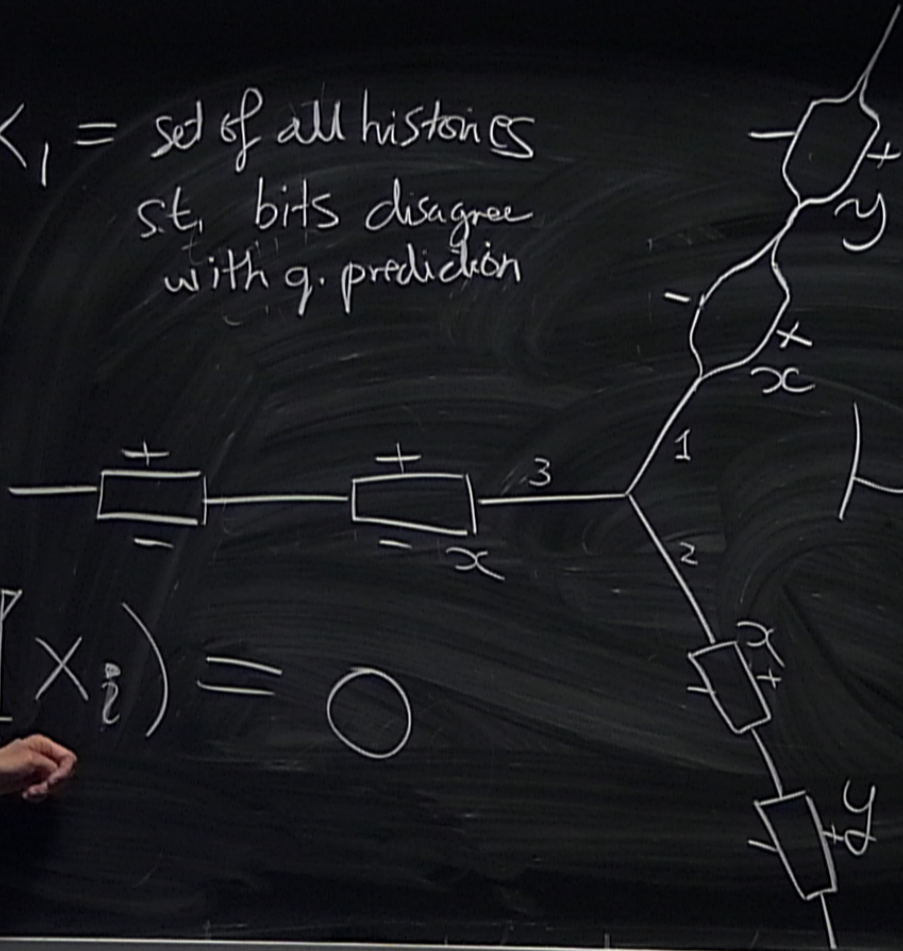 X₁ = set of all histories
s.t. bits disagree
with q. prediction
- +
y
- +
x
1
+ + 3
- - x
2
x
- +
y
- +
Xᵢ) = 0